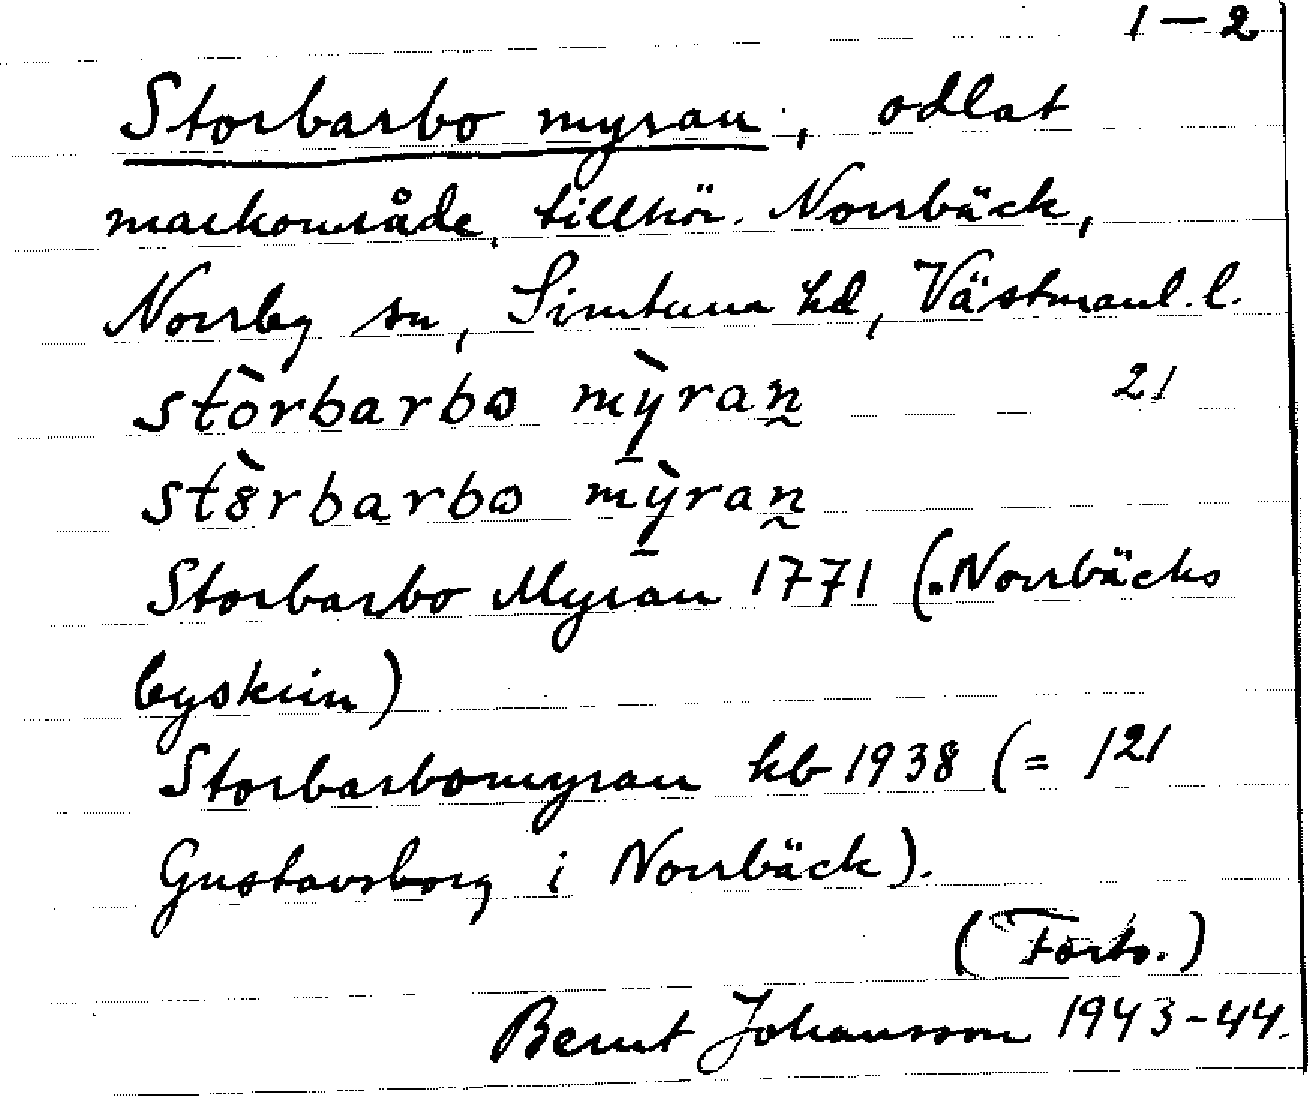 1–2
Storbarbo myran, odlat
markområde, tillhör. Norrbäck,
Norrby sn, Simtuna hd, Västmanl. l.
stòrbarbɷ mỳ̱ran̰ 21
stȍ̀rbarbɷ mỳ̱ran̰
Storbarbo Myran 1771 (Norrbäcks
byskrin)
Storbarbomyran kb 1938 (= 1²¹
Gustavsborg i Norrbäck).
(Forts.)
Bernt Johansson 1943-44.